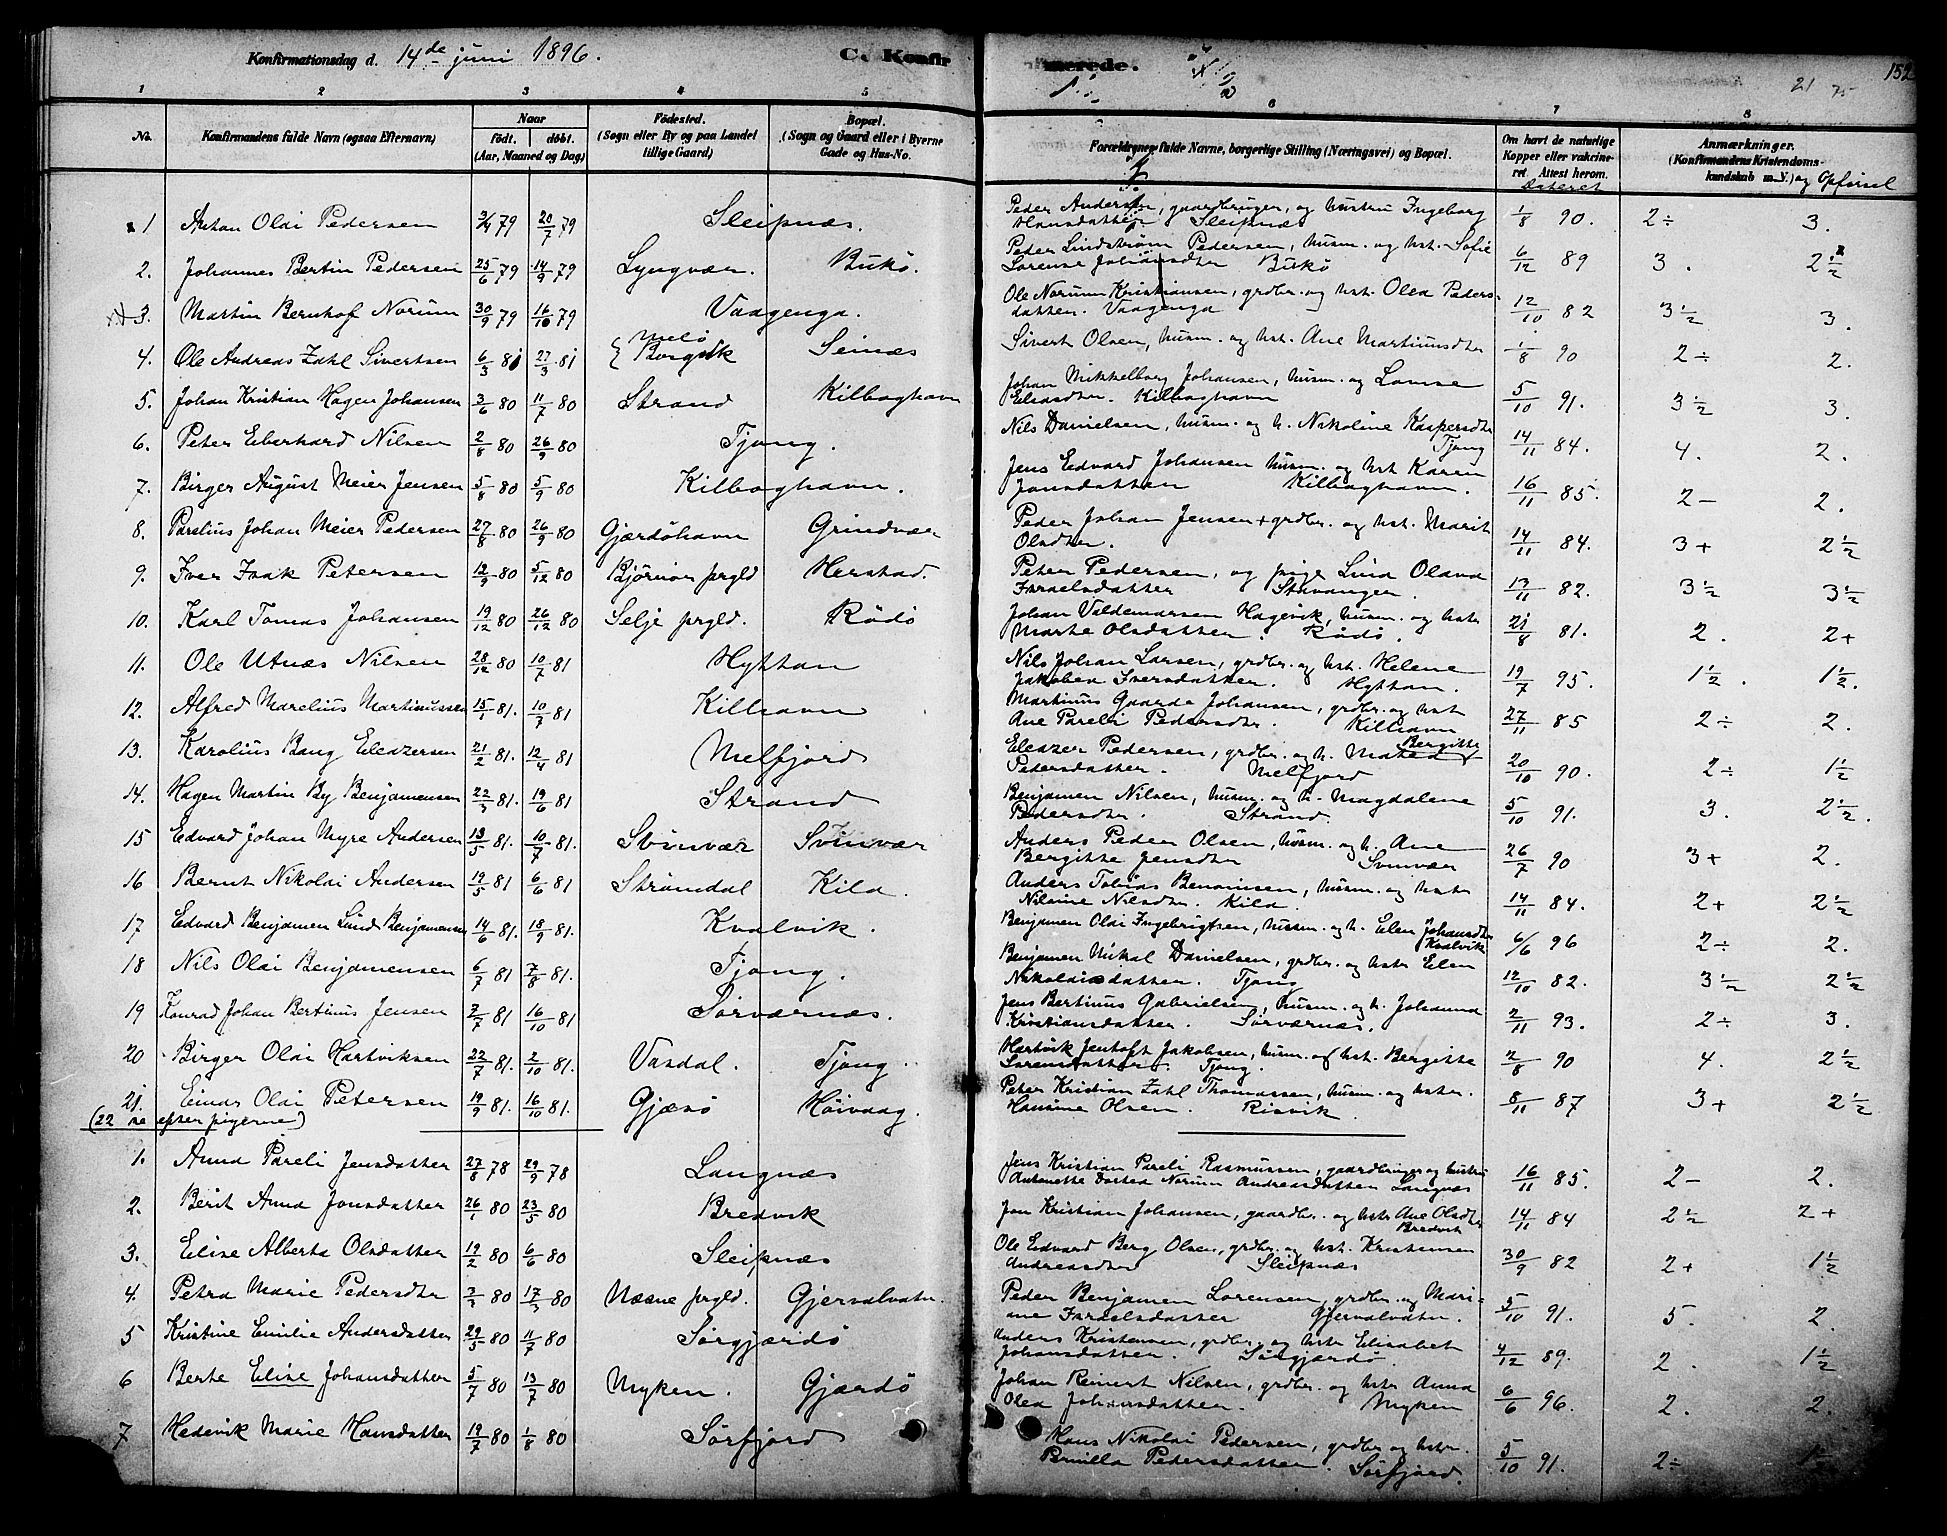 Konfirmationsdag d. 14de juni 1896. C. Konfirmerede. 152
21 75
1 2 3 4 5 6 7 8
No. Konfirmandens fulde Navn (ogsaa Efternavn) Naar født. døbt. (Aar, Maaned og Dag) Fødested. (Sogn eller By og paa Landet tillige Gaard) Bopæl. (Sogn og Gaard eller i Byerne Gade og Hus-No. Forældrenes fulde Navne, borgerlige Stilling (Næringsvei) og Bopæl. Om havt de naturlige Kopper eller vakcineret. Attest herom. Dateret Anmærkninger. (Konfirmandens Kristendomskundskab m. V.) og Opførsel
1 Anton Olai Pedersen 3/4 79 20/7 79 Sleipnæs. Peder Andersen, gaardbruger, og hustru Ingeborg Hansdatter Sleipnæs 1/8 90. 2÷ 3.
2. Johannes Bertin Pedersen 25/6 79 14/9 79 Lyngvær. Bukø. Peder Lindstrøm Pedersen, husm. og hst. Sofie Lorense Johansdtr Bukø 6/12 89 3. 2 1/2
3. Martin Bernhof Norum 30/9 79 16/10 79 Vaagenga. Ole Norum Kristiansen, grdbr. og hst. Olea Pedersdatter. Vaagenga 12/10 82 3 1/2 3.
4. Ole Andreas Zahl Sivertsen 6/3 81 27/3 81 Melø Selnæs Sivert Olsen, husm. og hst. Ane Martinusdtr 1/8 90 2÷ 2.
5. Johan Kristian Hagen Johansen 3/6 80 11/7 80 Strand Kilboghavn Johan Mikkelborg Johansen, husm. og Lomse Eliasdtr. Kilboghavn 5/10 91. 3 1/2 3.
6. Peter Eberhard Nilsen 2/8 80 26/9 80 Tjong. Nils Danielsen, husm. og h. Nikoline Kaspersdtr Tjong 14/11 84. 4. 2.
7. Birger August Meier Jensen 5/8 80 5/9 80 Kilboghavn. Jens Edvard Johansen husm. og hst Karen Jonsdatter Kilboghavn. 16/11 85. 2- 2.
8. Parelius Johan Meier Pedersen 27/8 80 26/9 80 Gjærdøhavn Grindvær Peder Johan Jensen + grdbr. og hst. Marit Olsdtr. 14/11 84. 3+ 2 1/2
9. Iver Isak Petersen 12/9 80 5/12 80 Bjørnør prgld Herstad. Peter Pedersen, og pige Lina Olava Israelsdatter Stavanger. 13/11 82. 3 1/2 3 1/2
10. Karl Tomas Johansen 19/12 80 26/12 80 Selje prgld. Rødø Johan Valdemarsen Hagevik, husm. og hstr Marte Olsdatter. Rødø. 21/8 81. 2. 2+
11. Ole Utnæs Nilsen 28/12 80 10/7 81 Hyttan Nils Johan Larsen, grdbr. og hst. Helene Jakobea Iversdatter. Hyttan. 19/7 95. 1 1/2. 1 1/2.
12. Alfred Marelius Martinussen 15/1 81. 10/7 81 Kilhavn Martinus Gaarde Johansen, grdbr. og hst Ane Pareli Pedersdtr. Kilhavn 27/11 85 2÷ 2.
13. Karolius Bang Eleazersen 21/2 81. 12/4 81 Melfjord Eleazer Pedersen, grdbr. og h. Bergitte Pedersdatter. Melfjord 20/10 90. 2÷ 1 1/2
14. Hagen Martin By Benjamensen 22/3 81. 19/6 81 Strand Benjamen Nilsen, husm. og h. Magdalene Pedersdtr. Strand. 5/10 91. 3. 2 1/2.
15 Edvard Johan Myre Andersen 13/5 81. 10/7 81. Svinvær Svinvær Anders Peder Olsen, husm. og h. Ane Bergitte Jensdtr Svinvær 26/7 90 3+ 2.
16 Bernt Nikolai Andersen 19/5 81 6/6 81 Strømdal Kila. Anders Tobias Benonisen, husm. og hstr Nilsine Nilsdtr. Kila. 14/11 84. 2+ 2 1/2
17 Edvard Benjamen Lund Benjamensen 14/6 81. 18/9 81. Kvalvik. Benjamen Olai Ingebrigtsen, husm. og h. Elen Johansdtr Kvalvik 6/6 96 2÷ 2.
18 Nils Olai Benjamensen 6/7 81 7/8 81. Tjong. Benjamen Mikal Danielsen, grdbr. og hstr Elen Nikolaisdatter. Tjong 12/10 82. 3 1/2 2 1/2
19 Konrad Johan Bertinus Jensen 2/7 81 16/10 81 Sørværnæs. Jens Bertinus Gabrielsen, husm. og h. Johanna Kristiansdatter. Sørværnæs. 2/11 93. 2÷ 3.
20 Birger Olai Hartviksen 22/7 81. 2/10 81. Vasdal. Tjong Hartvik Jentoft Jakobsen, husm. og hst. Bergitte Lorensdatter. Tjong. 2/8 90 4. 2 1/2
21. Einar Olai Petersen 19/9 81. 16/10 81. Gjæsø Høivaag. Peter Kristian Zahl Thomassen, husm. og hstr. Hansine Olsen. Risvik. 8/11 87 3+ 2 1/2
(22 ne efter pigerne)
1. Anna Pareli Jensdatter 27/8 78 29/9 78 Langnæs Jens Kristian Pareli Rasmussen, gaardbruger og hustru Antonette Dortea Norum Andreasdatter Langnæs 16/11 85. 2- 2.
2. Berit Anna Jonsdatter 26/1 80 23/5 80 Bredvik Jon Kristian Johansen, gaardbr. og hstr Ane Olsdtr Bredvik 14/11 84 2 1/2 2+
3. Elise Alberta Olsdatter 19/2 80 6/6 80 Sleipnæs Ole Edvard Berg Olsen, grdbr. og hst. Kristensen Andreasdtr Sleipnæs 30/9 82 2+ 1 1/2
4. Petra Marie Pedersdtr 3/3 80 17/3 80 Næsne prgld. Gjervalvatn. Peder Benjamen Lorensen, grdbr. og Marine Israelsdatter Gjervalvatn. 5/10 91. 5. 2.
5 Kristine Emilie Andersdatter 29/5 80 11/7 80 Sørgjærdø Anders Kristensen, grdbr. og hstr Elisabet Johansdatter. Sørgjærdø. 4/12 89. 2. 1 1/2
6 Berte Elise Johansdatter 5/7 80 13/7 80 Myken. Gjærdø Johan Reinert Nilsen, grdbr. og hstr Anna Olea Johansdatter. Myken 6/6 96. 2. 2.
7 Hedevik Marie Hansdatter 19/7 80 1/8 80 Sørfjord Hans Nikolai Pedersen, grdbr og hstr. Pernilla Pedersdatter. Sørfjord. 5/10 91. 2÷